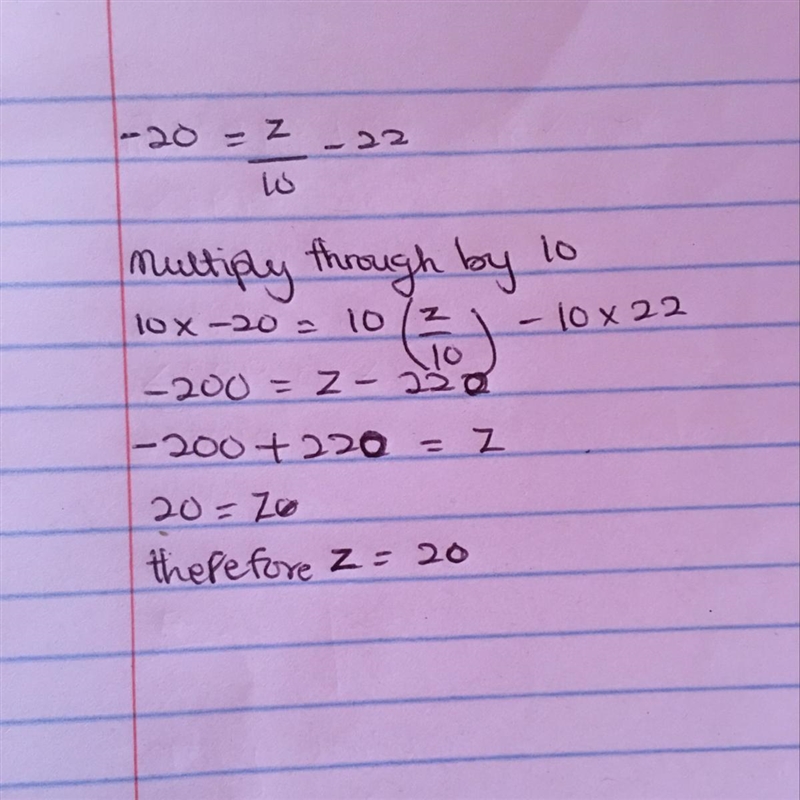 -20 = z/10 - 22
Multiply through by 10
10 x -20 = 10 (z/10) - 10 x 22
-200 = z - 220
-200 + 220 = z
20 = z
therefore z = 20